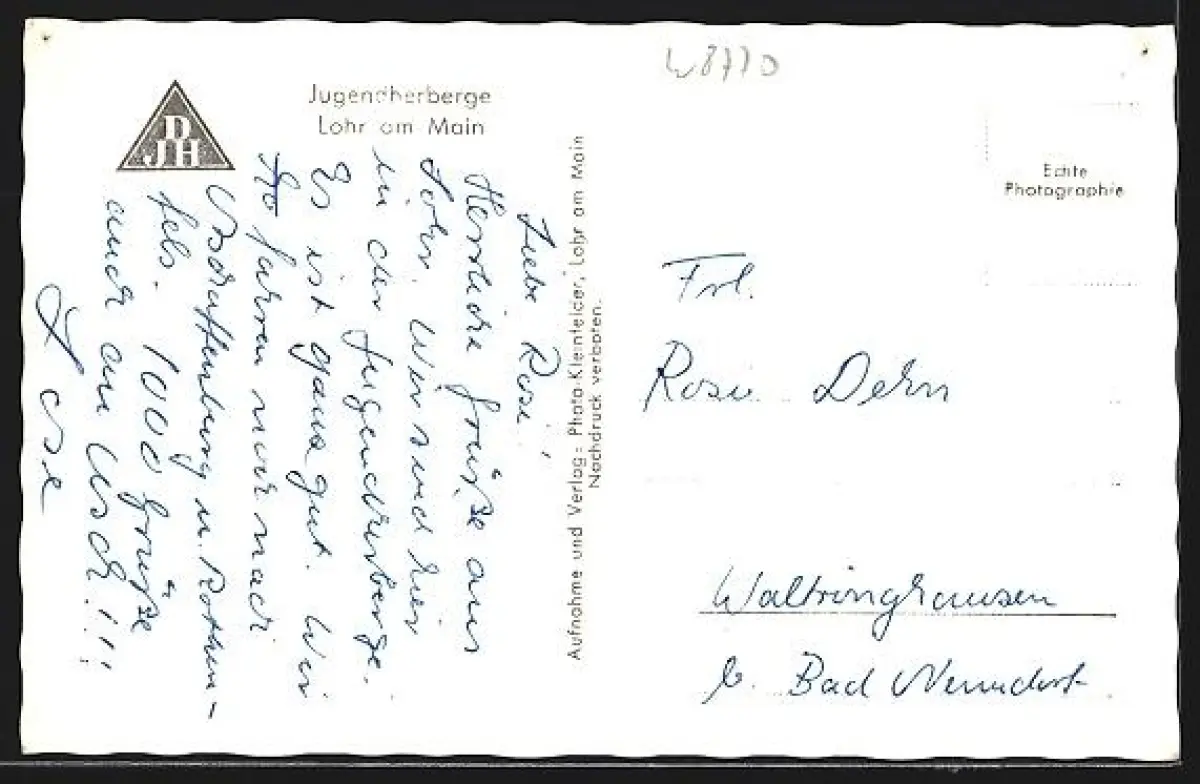 W8770
D
JH
Jugendherberge
Lohr am Main
Liebe Rosi!
Herzliche Grüße aus
Lohr. Wir sind hier
in der Jugendherberge.
Es ist ganz gut. Wir
fahren nun nach
Aschaffenburg u. Rothen-
fels. 1000 Grüße
auch an Usch!!!
Ilse
Aufnahme und Verlag: Photo-Kleinfelder, Lohr am Main
Nachdruck verboten.
Echte
Photographie
Frl.
Rosi Dehn
Waltringhausen
b. Bad Nenndorf